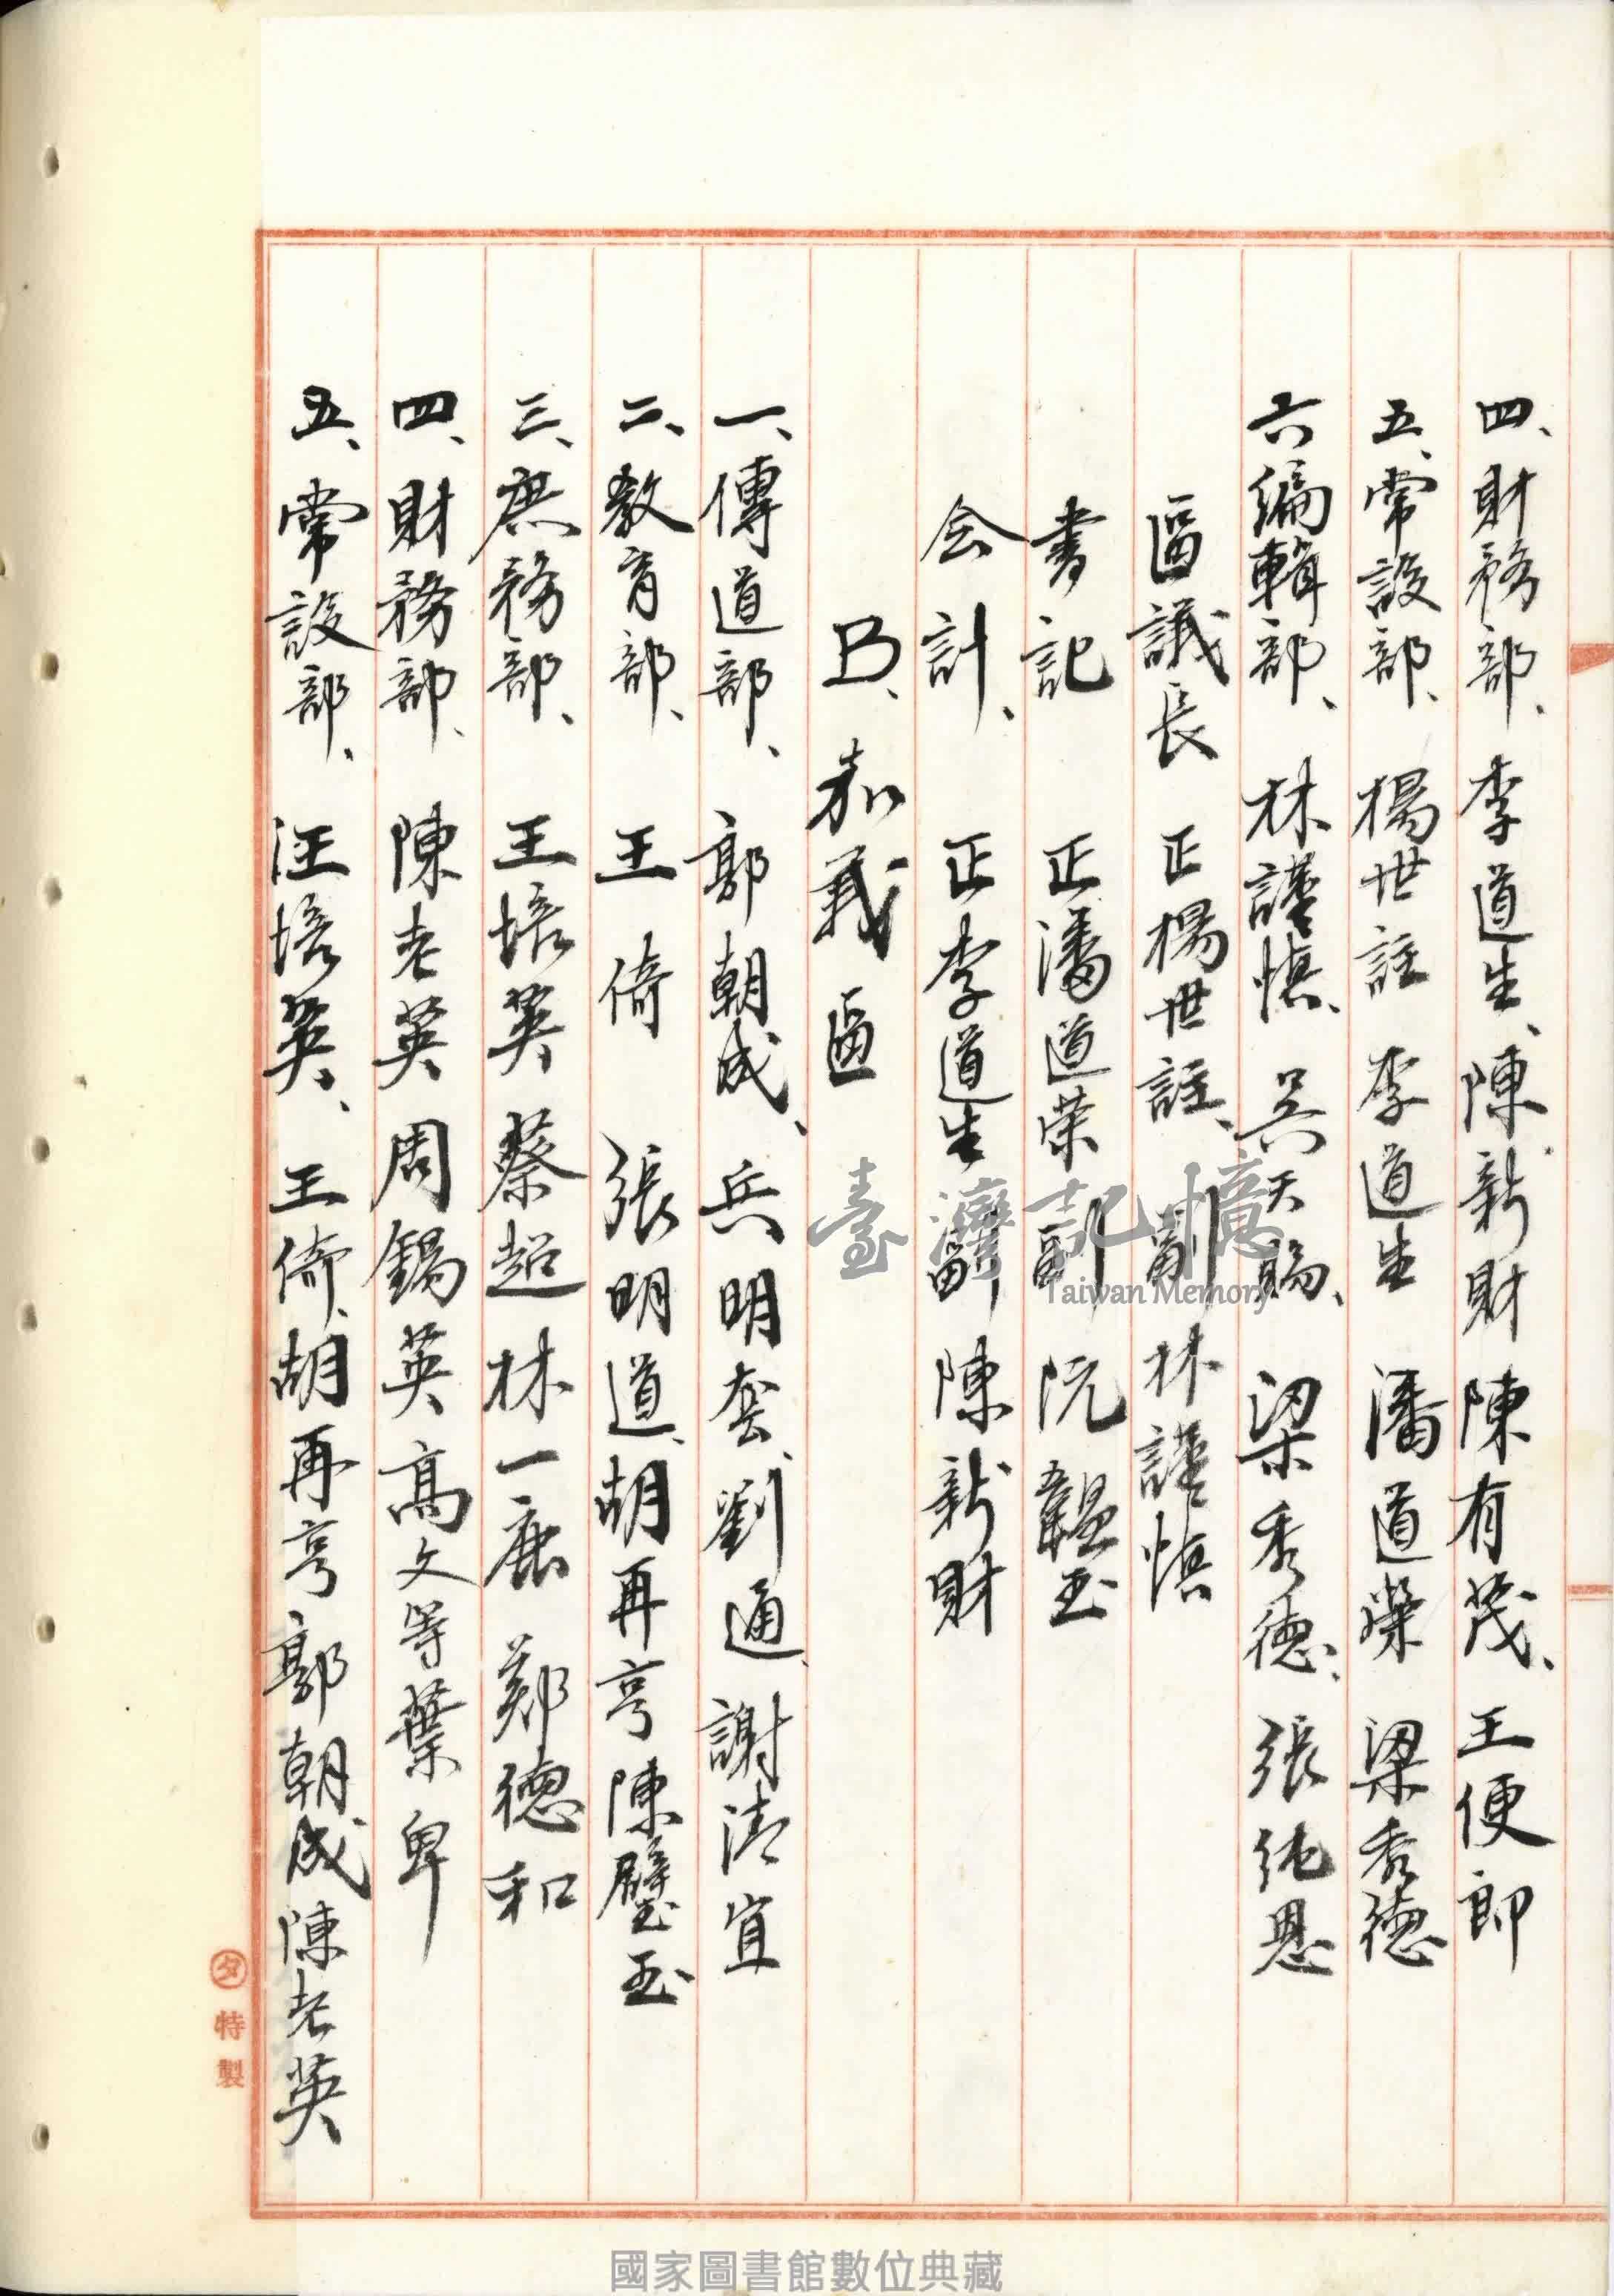 四、財務部、李道生、陳新財 陳有茂、王便郎
五、常設部、楊世註 李道生 潘道榮 梁秀德
六編輯部、林謹慎、吳天賜、梁秀德、張純恩
區議長 正楊世註、副林謹慎
書記 正潘道荣 副阮韞玉
会計、正李道生 副陳新財
B、嘉義區
一、傳道部、郭朝成、兵明套、劉通、謝清宜
二、教育部、王倚 張明道、胡再亨 陳璧玉
三、庶務部、王培英 蔡超 林一鹿 鄭德和
四、財務部、陳老英 周錫英 高文等 葉卑
五、常設部、汪培英、王倚、胡再亨 郭朝成 陳老英
タ特製
臺灣記憶
Taiwan Memory
國家圖書館數位典藏